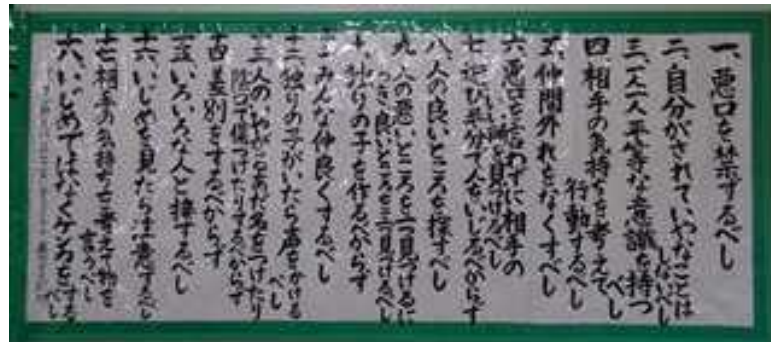 一、悪口を禁ずるべし
二、自分がされていやなことは
しないべし
三、一人一人平等な意識を持つ
べし
四、相手の気持ちを考えて
行動するべし
五、仲間外れをなくすべし
六、悪口を言わずに相手の
良い所を見つけるべし
七、遊び半分で人をいじるべからず
八、人の良いところを探すべし
九、人の悪いところを一つ見つけるに
つき、良いところを三つ見つけるべし
十、独りの子を作るべからず
十一、みんな仲良くするべし
十二、独りの子がいたら声をかける
べし
十三、人のいやがるあだ名をつけたり
陰口で傷つけたりするべからず
十四、差別をするべからず
十五、いろいろな人と接するべし
十六、いじめを見たら注意するべし
十七、相手の気持ちを考えて物を
言うべし
十八、いじめではなくケンカをする
べし